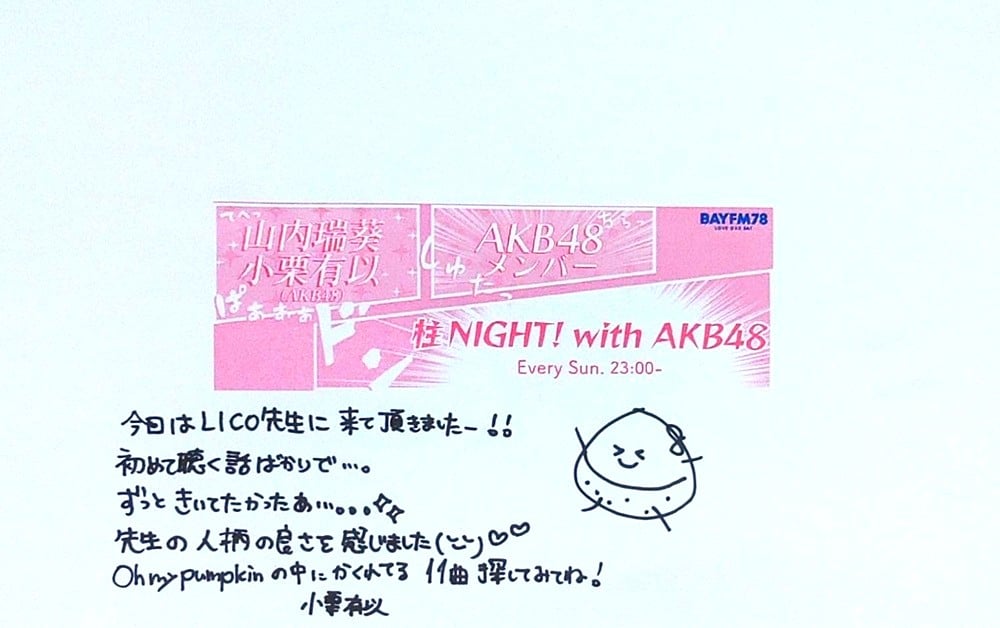 てへっ
山内瑞葵
小栗有以
(AKB48)
AKB48
メンバー
BAYFM78
LOVE OUR BAY
ぱぁーぁーぁぁ
ド
柱NIGHT! with AKB48
Every Sun. 23:00-
今日はLICO先生に来て頂きましたー!!
初めて聴く話ばかりで…。
ずっときいてたかったあ…...
先生の人柄の良さを感じました(¨̮)♡♡
Oh my pumpkinの中にかくれてる11曲探してみてね!
小栗有以